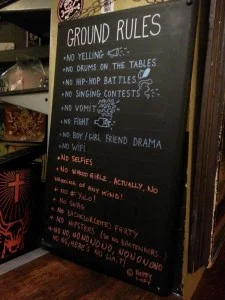 GROUND RULES
+NO YELLING
+NO DRUMS ON THE TABLES
+NO HIP-HOP BATTLES
+NO SINGING CONTESTS
+NO VOMIT
+NO FIGHT
+NO BOY/GIRL FRIEND DRAMA
+NO WIFI
+NO SELFIES
+NO WHOOO GIRLS. ACTUALLY, NO
WHOOING OF ANY KIND!
+NO #YOLO!
+NO SWAG
+NO BACHELOR(ETTE) PARTY
+NO HIPSTERS (BARTENDERS)
+NO, NO, NO, NO, NO, NO, NO, NO
NO, NO, THERE'S NO LIMIT!